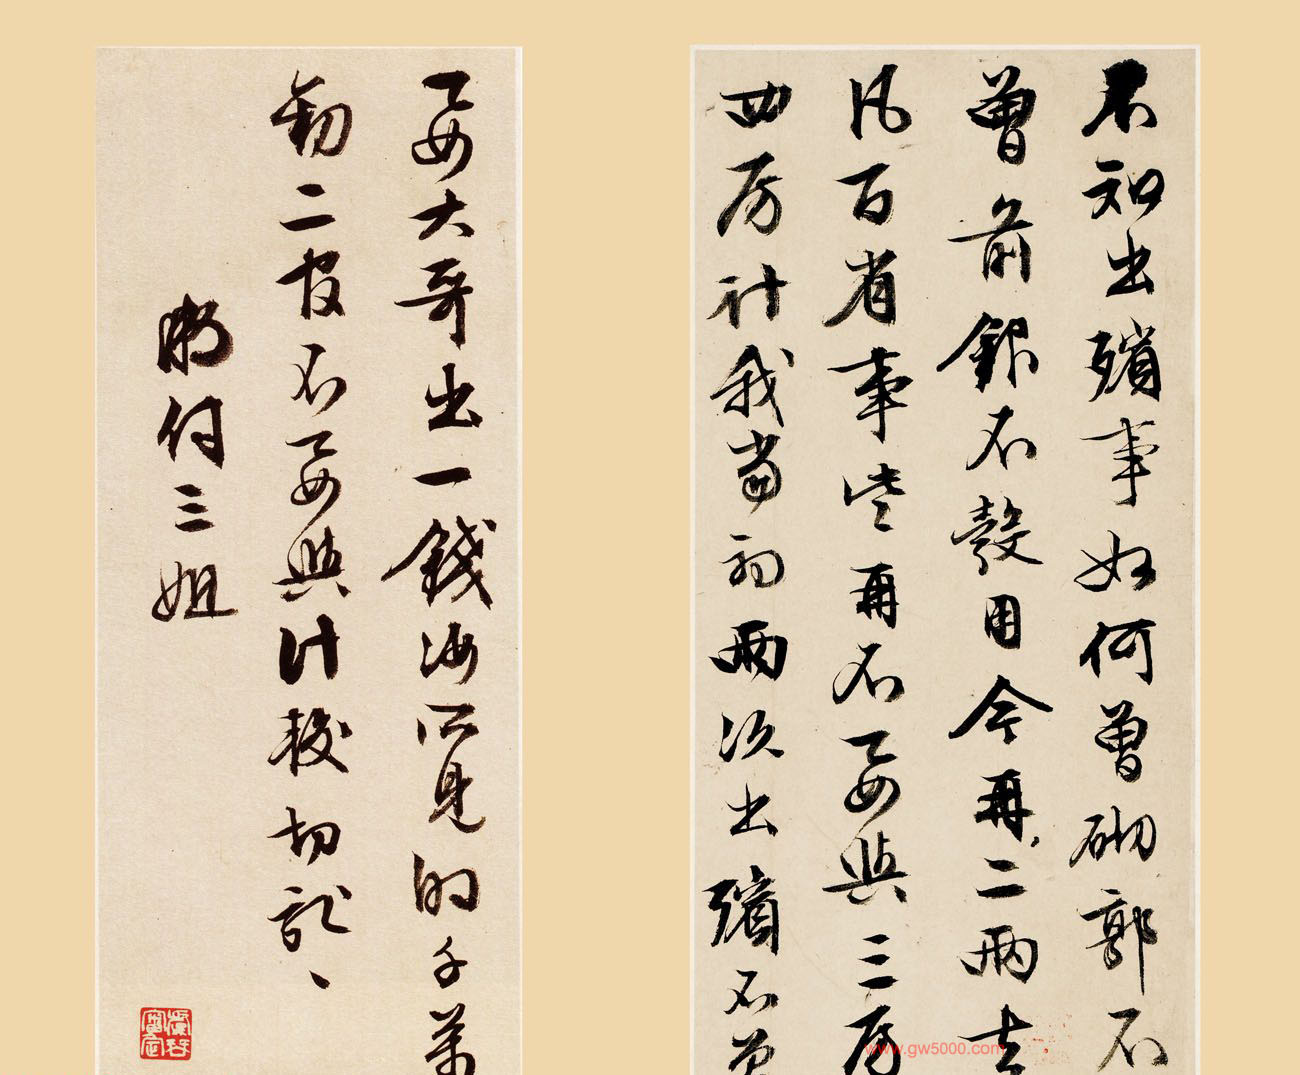 不知出殯事如何曾砌郭不
曾前銀不彀用今再二兩去
凡百省事些再不要與三房
四房計我當初兩次出殯不曾
要大哥出一錢汝所見的千萬
勸二官不要與計較切記、
付三姐
www.gw5000.com